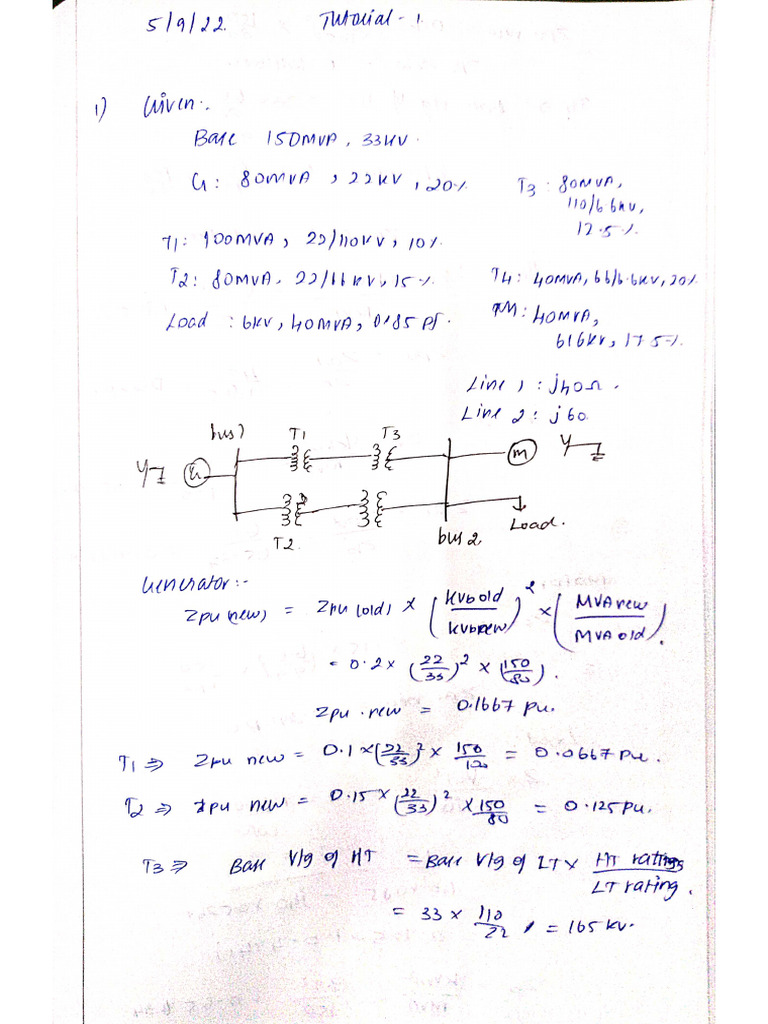 5/9/22. Tutorial - 1.
1) Given:.
Base 150MVA, 33KV.
G: 80MVA, 22KV, 20%
T3: 80MVA,
110/6.6KV,
17.5%
T1: 100MVA, 22/110KV, 10%
T2: 80MVA, 22/66KV, 15%
T4: 40MVA, 66/6.6KV, 20%
Load: 6KV, 40MVA, 0.85 Pf.
M: 40MVA,
6.6KV, 17.5%
Line 1: j40Ω.
Line 2: j60
bus 1 T1 T3
Y G M Y
T2 bus 2 Load.
Generator:-
Zpu (new) = Zpu (old) × (KVb old / KVb new)² × (MVA new / MVA old).
= 0.2 × (22/33)² × (150/80).
Zpu . new = 0.1667 pu.
T1 ⇒ Zpu new = 0.1 × (22/33)² × 150/100 = 0.0667 Pu.
T2 ⇒ Zpu new = 0.15 × (22/33)² × 150/80 = 0.125 Pu.
T3 ⇒ Base V/g of HT = Base V/g of LT × HT ratings / LT rating.
= 33 × 110/22 = 165 KV.